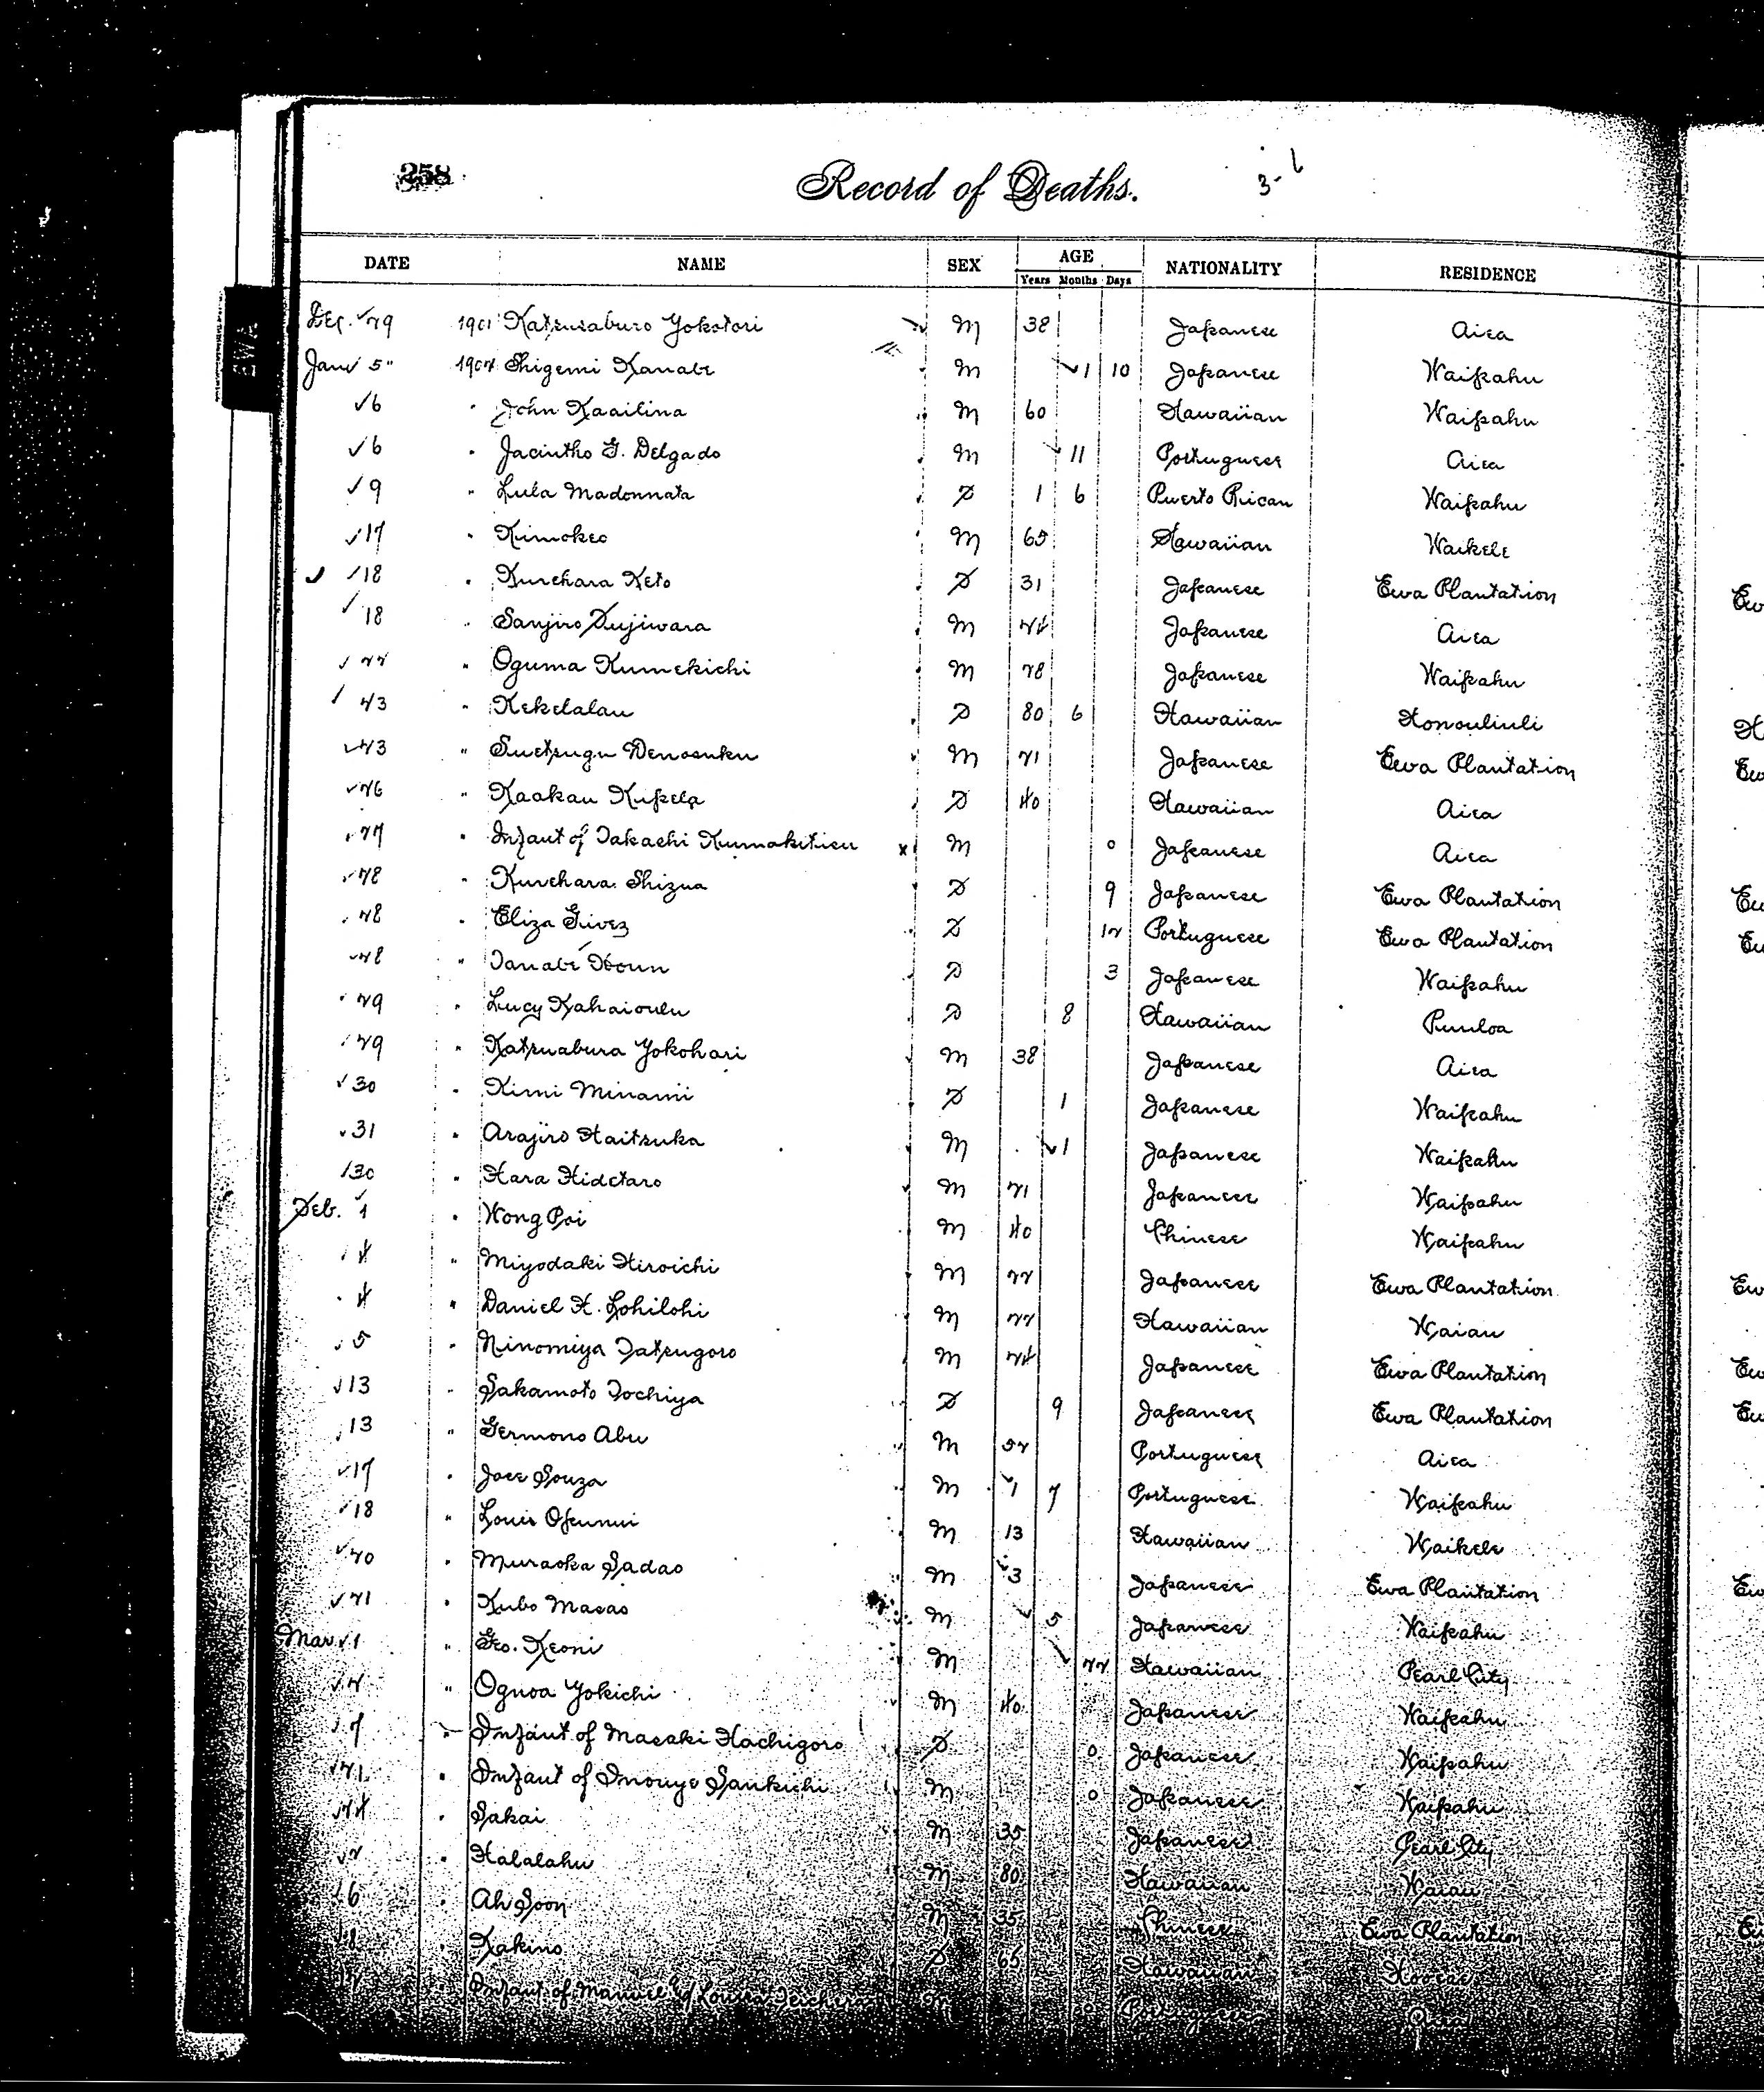 258
Record of Deaths.
3-6
EWA
DATE NAME SEX AGE NATIONALITY RESIDENCE
Years Months Days
Dec. 29 1901 Katsusaburo Yokotori M 38 Japanese Aiea
Jan 5" 1902 Shigemi Kanabe M 1 10 Japanese Waipahu
6 " John Kaailina M 60 Hawaiian Waipahu
6 " Jacintho G. Delgado M 11 Portuguese Aiea
9 " Lula Madonnata F 1 6 Puerto Rican Waipahu
17 " Kimokeo M 65 Hawaiian Waikele
18 " Kurehara Keto F 31 Japanese Ewa Plantation
18 " Sanjiro Fujiwara M 24 Japanese Aiea
22 " Oguma Kumekichi M 28 Japanese Waipahu
23 " Kekelalau F 80 6 Hawaiian Honouliuli
23 " Suetsugu Denosuku M 21 Japanese Ewa Plantation
26 " Kaakau Kupela F 40 Hawaiian Aiea
27 " Infant of Takashi M 0 Japanese Aiea
28 " Kurehara Shizua F 9 Japanese Ewa Plantation
28 " Eliza F 12 Portuguese Ewa Plantation
28 " Tanabe F 3 Japanese Waipahu
29 " Lucy Kahaioulu F 8 Hawaiian Puuloa
29 " Katsuabura Yokohari M 38 Japanese Aiea
30 " Kimi Minami F 1 Japanese Waipahu
31 " Arajiro Haitsuka M 1 Japanese Waipahu
30 " Hara Hidetaro M 21 Japanese Waipahu
Feb. 1 " Wong Poi M 40 Chinese Waipahu
4 " Miyodaki Hiroichi M 22 Japanese Ewa Plantation
4 " Daniel H. Lohilohi M 22 Hawaiian Waiau
5 " Ninomiya Tatsugoro M 24 Japanese Ewa Plantation
13 " Sakamoto Tochiya F 9 Japanese Ewa Plantation
13 " Germono Abu M 52 Portuguese Aiea
17 " Joee Souza M 1 7 Portuguese Waipahu
18 " Louis Opunui M 13 Hawaiian Waikele
20 " Muraoka Sadao M 3 Japanese Ewa Plantation
21 " Kubo Masao M 5 Japanese Waipahu
Mar. 1 " Geo. Keoni M 22 Hawaiian Pearl City
2 " Oguoa Yokichi M 40 Japanese Waipahu
7 " Infant of Masaki Hachigoro F 0 Japanese Waipahu
21 " Infant of Inouye Sankichi M 0 Japanese Waipahu
24 " Sakai M 35 Japanese Pearl City
2 " Halalahu M 80 Hawaiian Waiau
6 " Ah Soon M 35 Chinese Ewa Plantation
" Kakino F 65 Hawaiian Hooeae
Infant of Manuel & Louisa M 0 Portuguese